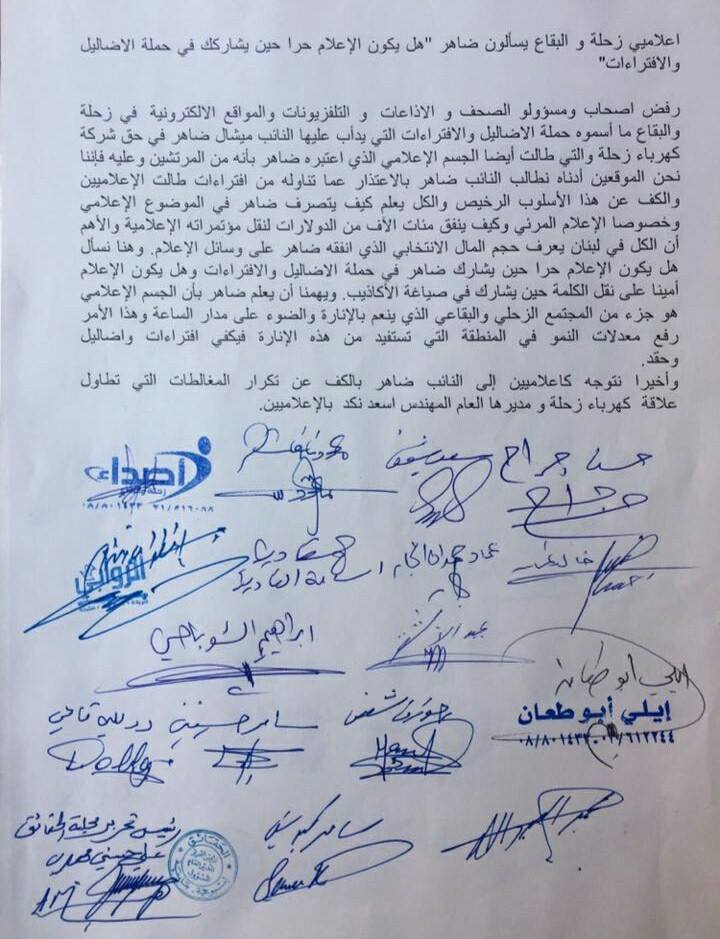 اعلاميي زحلة و البقاع يسألون ضاهر "هل يكون الإعلام حرا حين يشاركك في حملة الاضاليل
والافتراءات"
رفض اصحاب ومسؤولو الصحف و الاذاعات و التلفزيونات والمواقع الالكترونية في زحلة
والبقاع ما أسموه حملة الاضاليل والافتراءات التي يدأب عليها النائب ميشال ضاهر في حق شركة
كهرباء زحلة والتي طالت أيضا الجسم الإعلامي الذي اعتبره ضاهر بأنه من المرتشين وعليه فإننا
نحن الموقعين أدناه نطالب النائب ضاهر بالاعتذار عما تناوله من افتراءات طالت الإعلاميين
والكف عن هذا الأسلوب الرخيص والكل يعلم كيف يتصرف ضاهر في الموضوع الإعلامي
وخصوصا الإعلام المرئي وكيف ينفق مئات الأف من الدولارات لنقل مؤتمراته الإعلامية والأهم
أن الكل في لبنان يعرف حجم المال الانتخابي الذي انفقه ضاهر على وسائل الإعلام. وهنا نسأل
هل يكون الإعلام حرا حين يشارك ضاهر في حملة الاضاليل والافتراءات وهل يكون الإعلام
أمينا على نقل الكلمة حين يشارك في صياغة الأكاذيب. ويهمنا أن يعلم ضاهر بأن الجسم الإعلامي
هو جزء من المجتمع الزحلي والبقاعي الذي ينعم بالإنارة والضوء على مدار الساعة وهذا الأمر
رفع معدلات النمو في المنطقة التي تستفيد من هذه الإنارة فيكفي افتراءات واضاليل
وحقد.
وأخيرا نتوجه كاعلاميين إلى النائب ضاهر بالكف عن تكرار المغالطات التي تطاول
علاقة كهرباء زحلة و مديرها العام المهندس اسعد نكد بالإعلاميين.
حسنا جراح
جراح
أصداء
زحلة
ابراهيم الشوباصي
ايلي أبو طعان
إيلي أبو طعان
سامر حسيني
Dolly
رئيس تحرير مجلة الحقائق
الحقائق